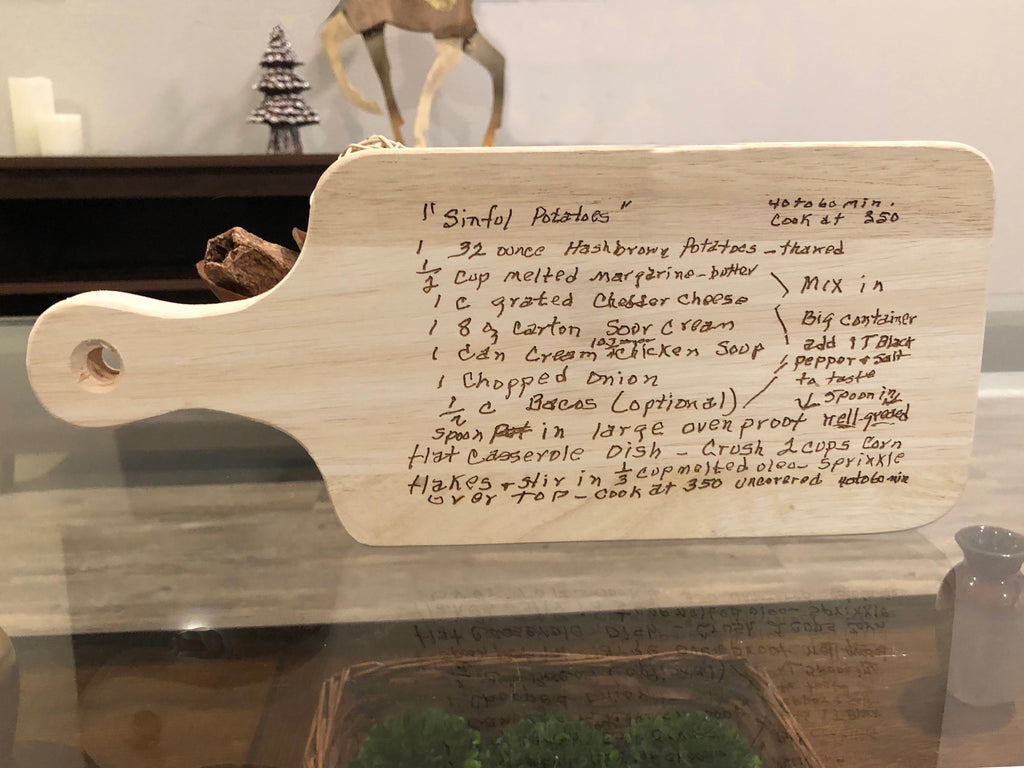 "Sinful Potatoes"
40 to 60 min.
Cook at 350
1 32 ounce Hashbrown Potatoes - thawed
1/2 cup melted margarine - butter
1 c grated Chedder cheese
1 8 oz Carton Sour Cream
1 Can Cream Chicken Soup
1 Chopped Onion
1/2 c Bacos (optional)
Mix in
Big container
add 1 T Black
pepper + salt
to taste
spoon in
spoon in large ovenproof well-greased
flat casserole Dish - Crush 2 cups Corn
flakes + stir in 1/3 cup melted oleo - Sprinkle
over top - cook at 350 uncovered 40 to 60 min